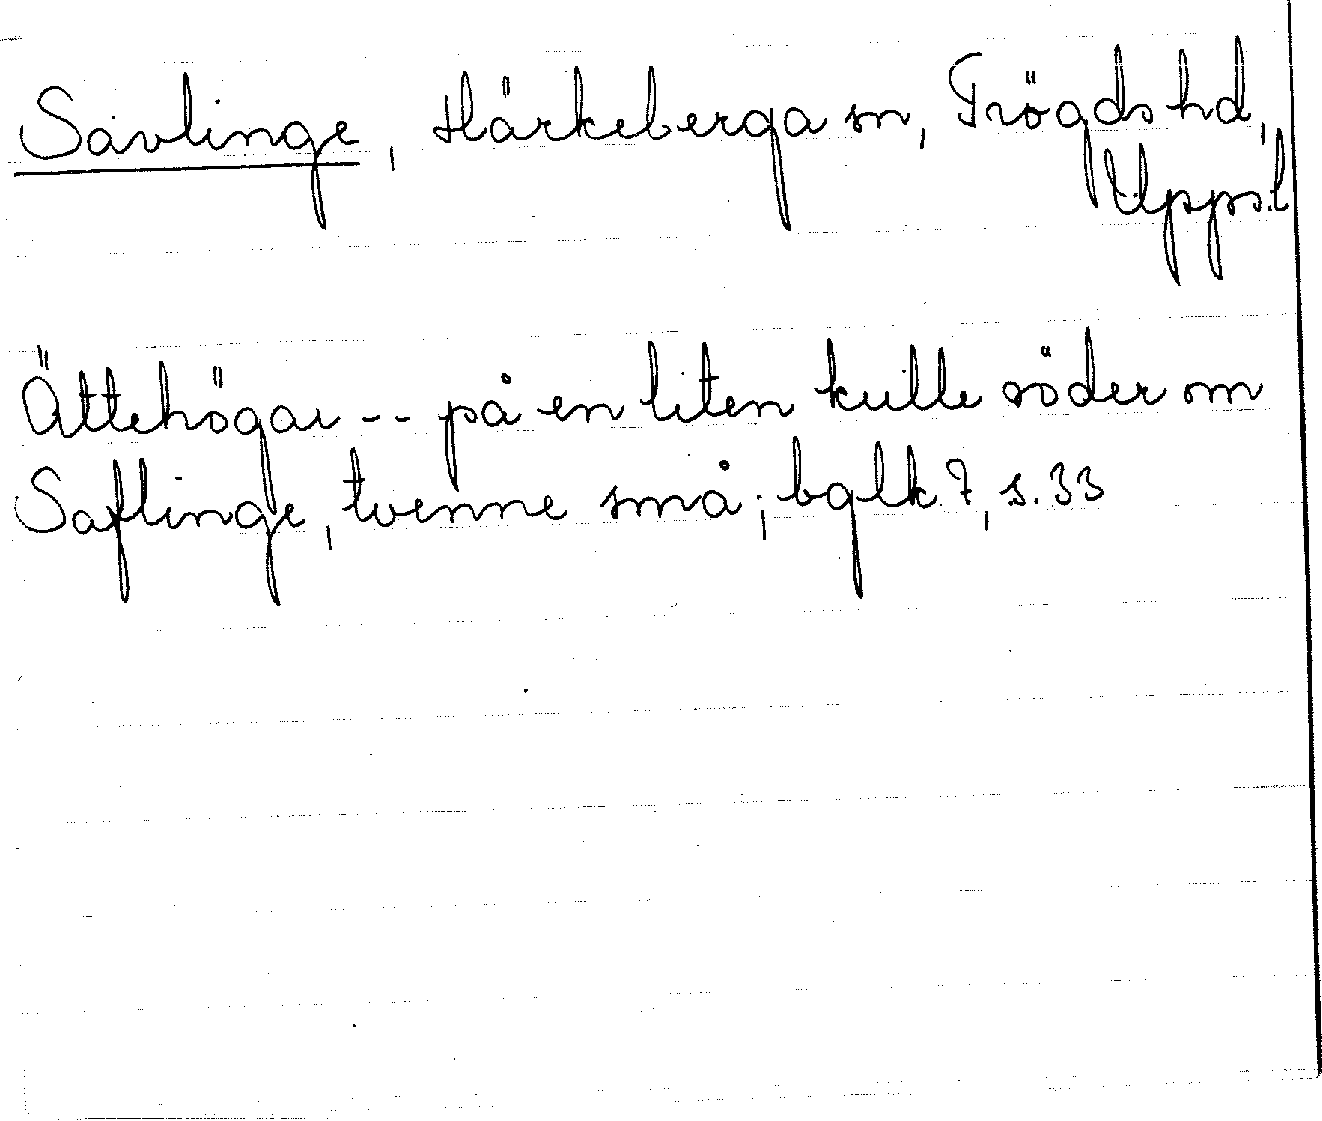 Savlinge, Härkeberga sn, Trögds hd,
Upps.l
Ättehögar -- på en liten kulle söder om
Saflinge, tvenne små; bglk 7, s. 33